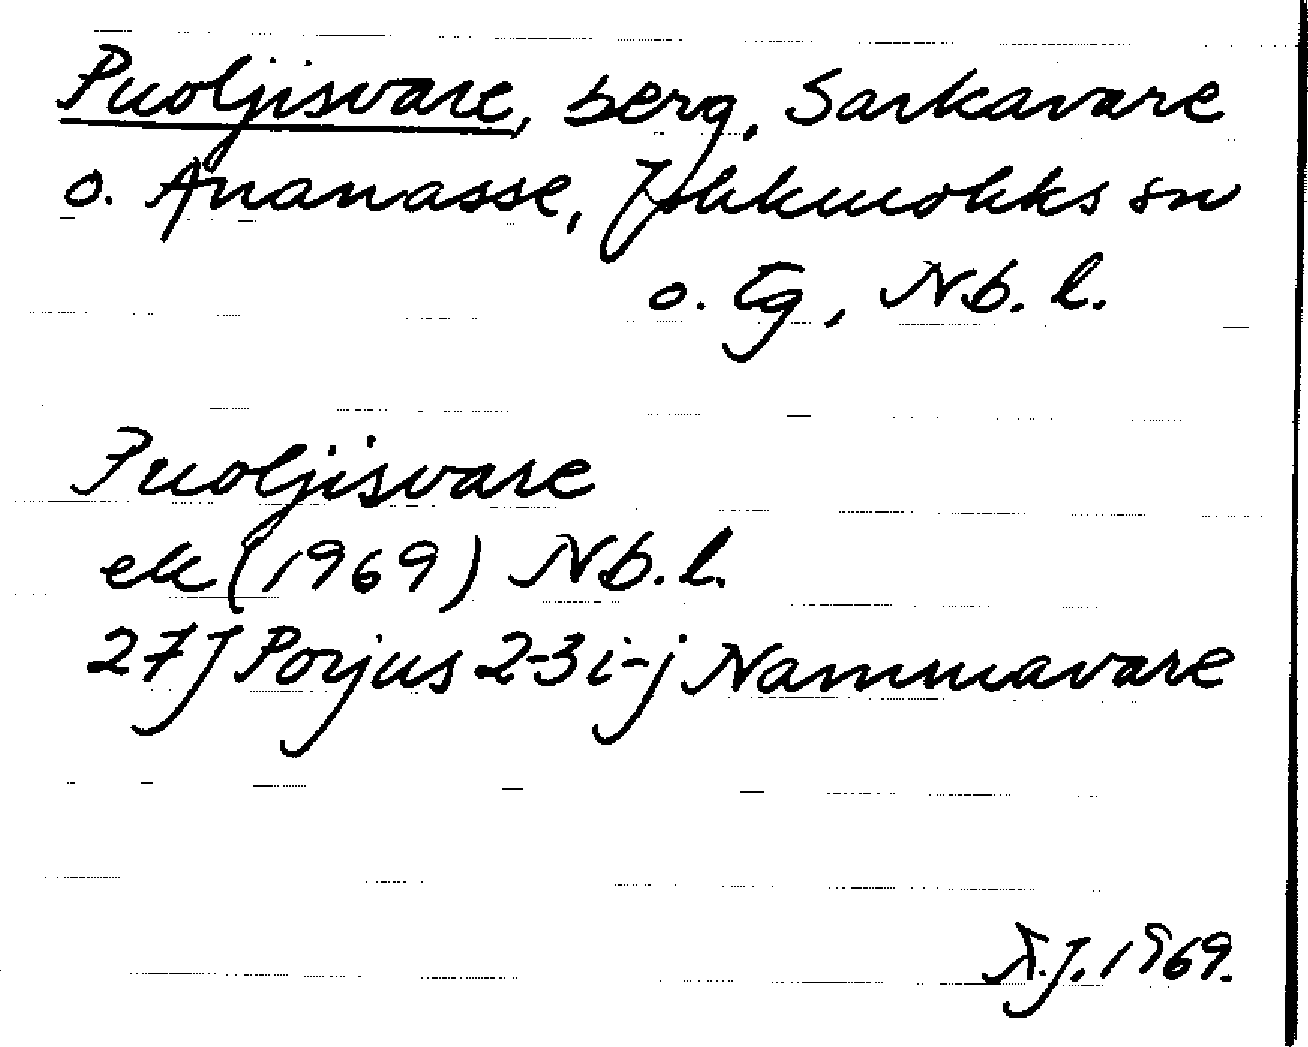 Puoljisvare, berg, Sarkavare
o. Ananasse, Jokkmokks sn
o. tg, Nb. l.
Puoljisvare
ek (1969) Nb. l.
27J Porjus 2-3 i-j Nammavare
A.J. 1969.